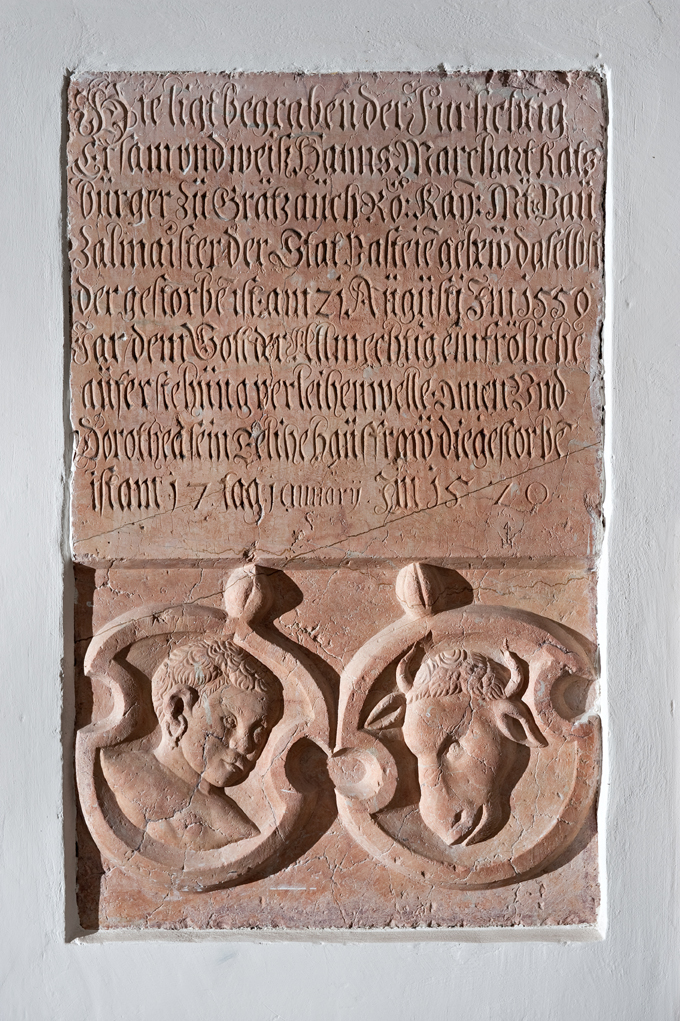 Hie ligt begraben der Fursichtig
Ersam vnd weiß Hanns Marchart Rats
bürger zů Grätz auch Rö: Kay: Mt: Paü
Zalmaister der Stat Pasteiē gebew daselbst
der gestorbē ist am 21 Augusti Im 1550
Jar dem Gott der Allmechtig ein fröliche
auferstehung verleihen welle Amen Vnd
Dorothea sein Eeliche haüsfraw die gestorbē
ist am 17 tag Januarÿ Im 1570